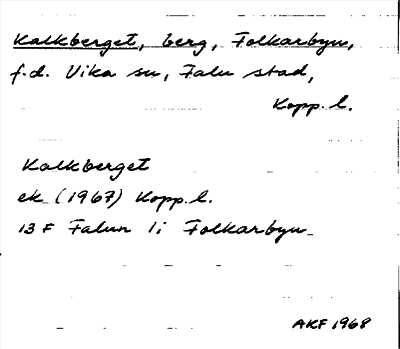 Kalkberget, berg, Folkarbyn,
f.d. Vika sn, Falu stad,
Kopp. l.
Kalkberget
ek (1967) Kopp. l.
13 F Falun 1i Folkarbyn
AKF 1968